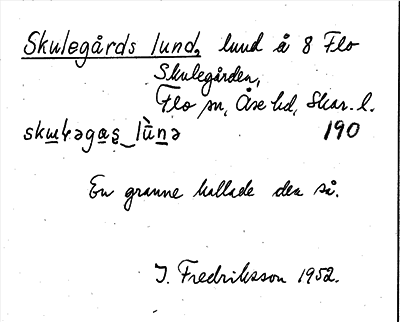 Skulegårds lund, lund å 8 Flo
Skulegården,
Flo sn, Åse hd, Skar. l.
190
En granne kallade den så.
J. Fredriksson 1952.